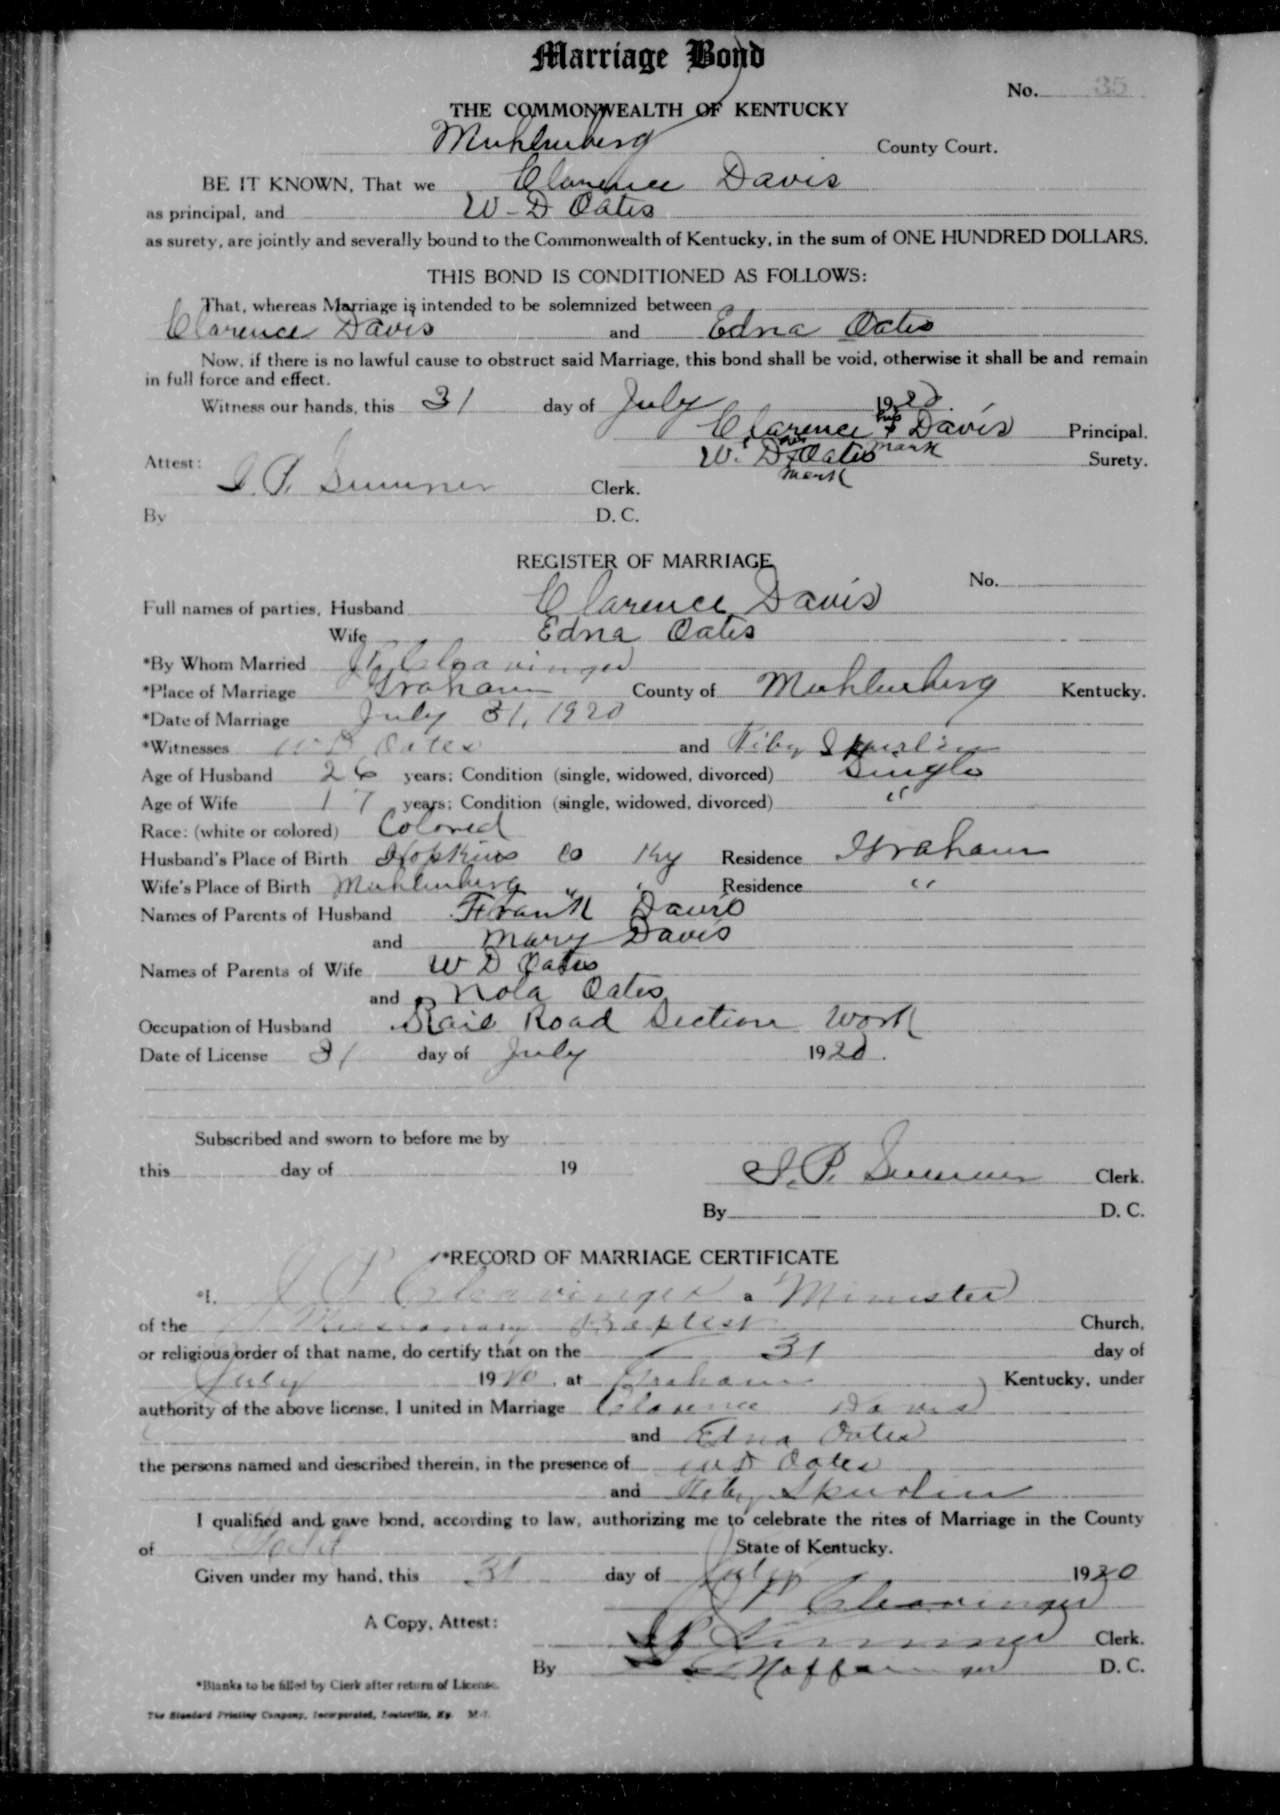 Marriage Bond
No. 35
THE COMMONWEALTH OF KENTUCKY
Muhlenberg County Court.
BE IT KNOWN, That we Clarence Davis
as principal, and W-D Oates
as surety, are jointly and severally bound to the Commonwealth of Kentucky, in the sum of ONE HUNDRED DOLLARS.
THIS BOND IS CONDITIONED AS FOLLOWS:
That, whereas Marriage is intended to be solemnized between
Clarence Davis and Edna Oates
Now, if there is no lawful cause to obstruct said Marriage, this bond shall be void, otherwise it shall be and remain
in full force and effect.
Witness our hands, this 31 day of July 1920.
Clarence his x mark Davis Principal.
Attest: W. D. his x mark Oates Surety.
Clerk.
By D. C.
REGISTER OF MARRIAGE
No.
Full names of parties, Husband Clarence Davis
Wife Edna Oates
*By Whom Married J P Cleavinger
*Place of Marriage Graham County of Muhlenberg Kentucky.
*Date of Marriage July 31, 1920
*Witnesses W D Oates and Spurlin
Age of Husband 26 years; Condition (single, widowed, divorced) Single
Age of Wife 17 years; Condition (single, widowed, divorced) "
Race: (white or colored) Colored
Husband's Place of Birth Hopkins Co Ky Residence Graham
Wife's Place of Birth Muhlenberg " " Residence "
Names of Parents of Husband Frank Davis
and Mary Davis
Names of Parents of Wife W D Oates
and Nola Oates
Occupation of Husband Rail Road Section Work
Date of License 31 day of July 1920.
Subscribed and sworn to before me by
this day of 19
Clerk.
By D. C.
*RECORD OF MARRIAGE CERTIFICATE
*I, J P Cleavinger a Minister
of the Missionary Baptist Church,
or religious order of that name, do certify that on the 31 day of
July 1920, at Graham Kentucky, under
authority of the above license, I united in Marriage Clarence Davis
and Edna Oates
the persons named and described therein, in the presence of W D Oates
and Spurlin
I qualified and gave bond, according to law, authorizing me to celebrate the rites of Marriage in the County
of Todd State of Kentucky.
Given under my hand, this 31 day of July 1920
J P Cleavinger
A Copy, Attest:
Clerk.
By D. C.
*Blanks to be filled by Clerk after return of License.
The Standard Printing Company, Incorporated, Louisville, Ky.